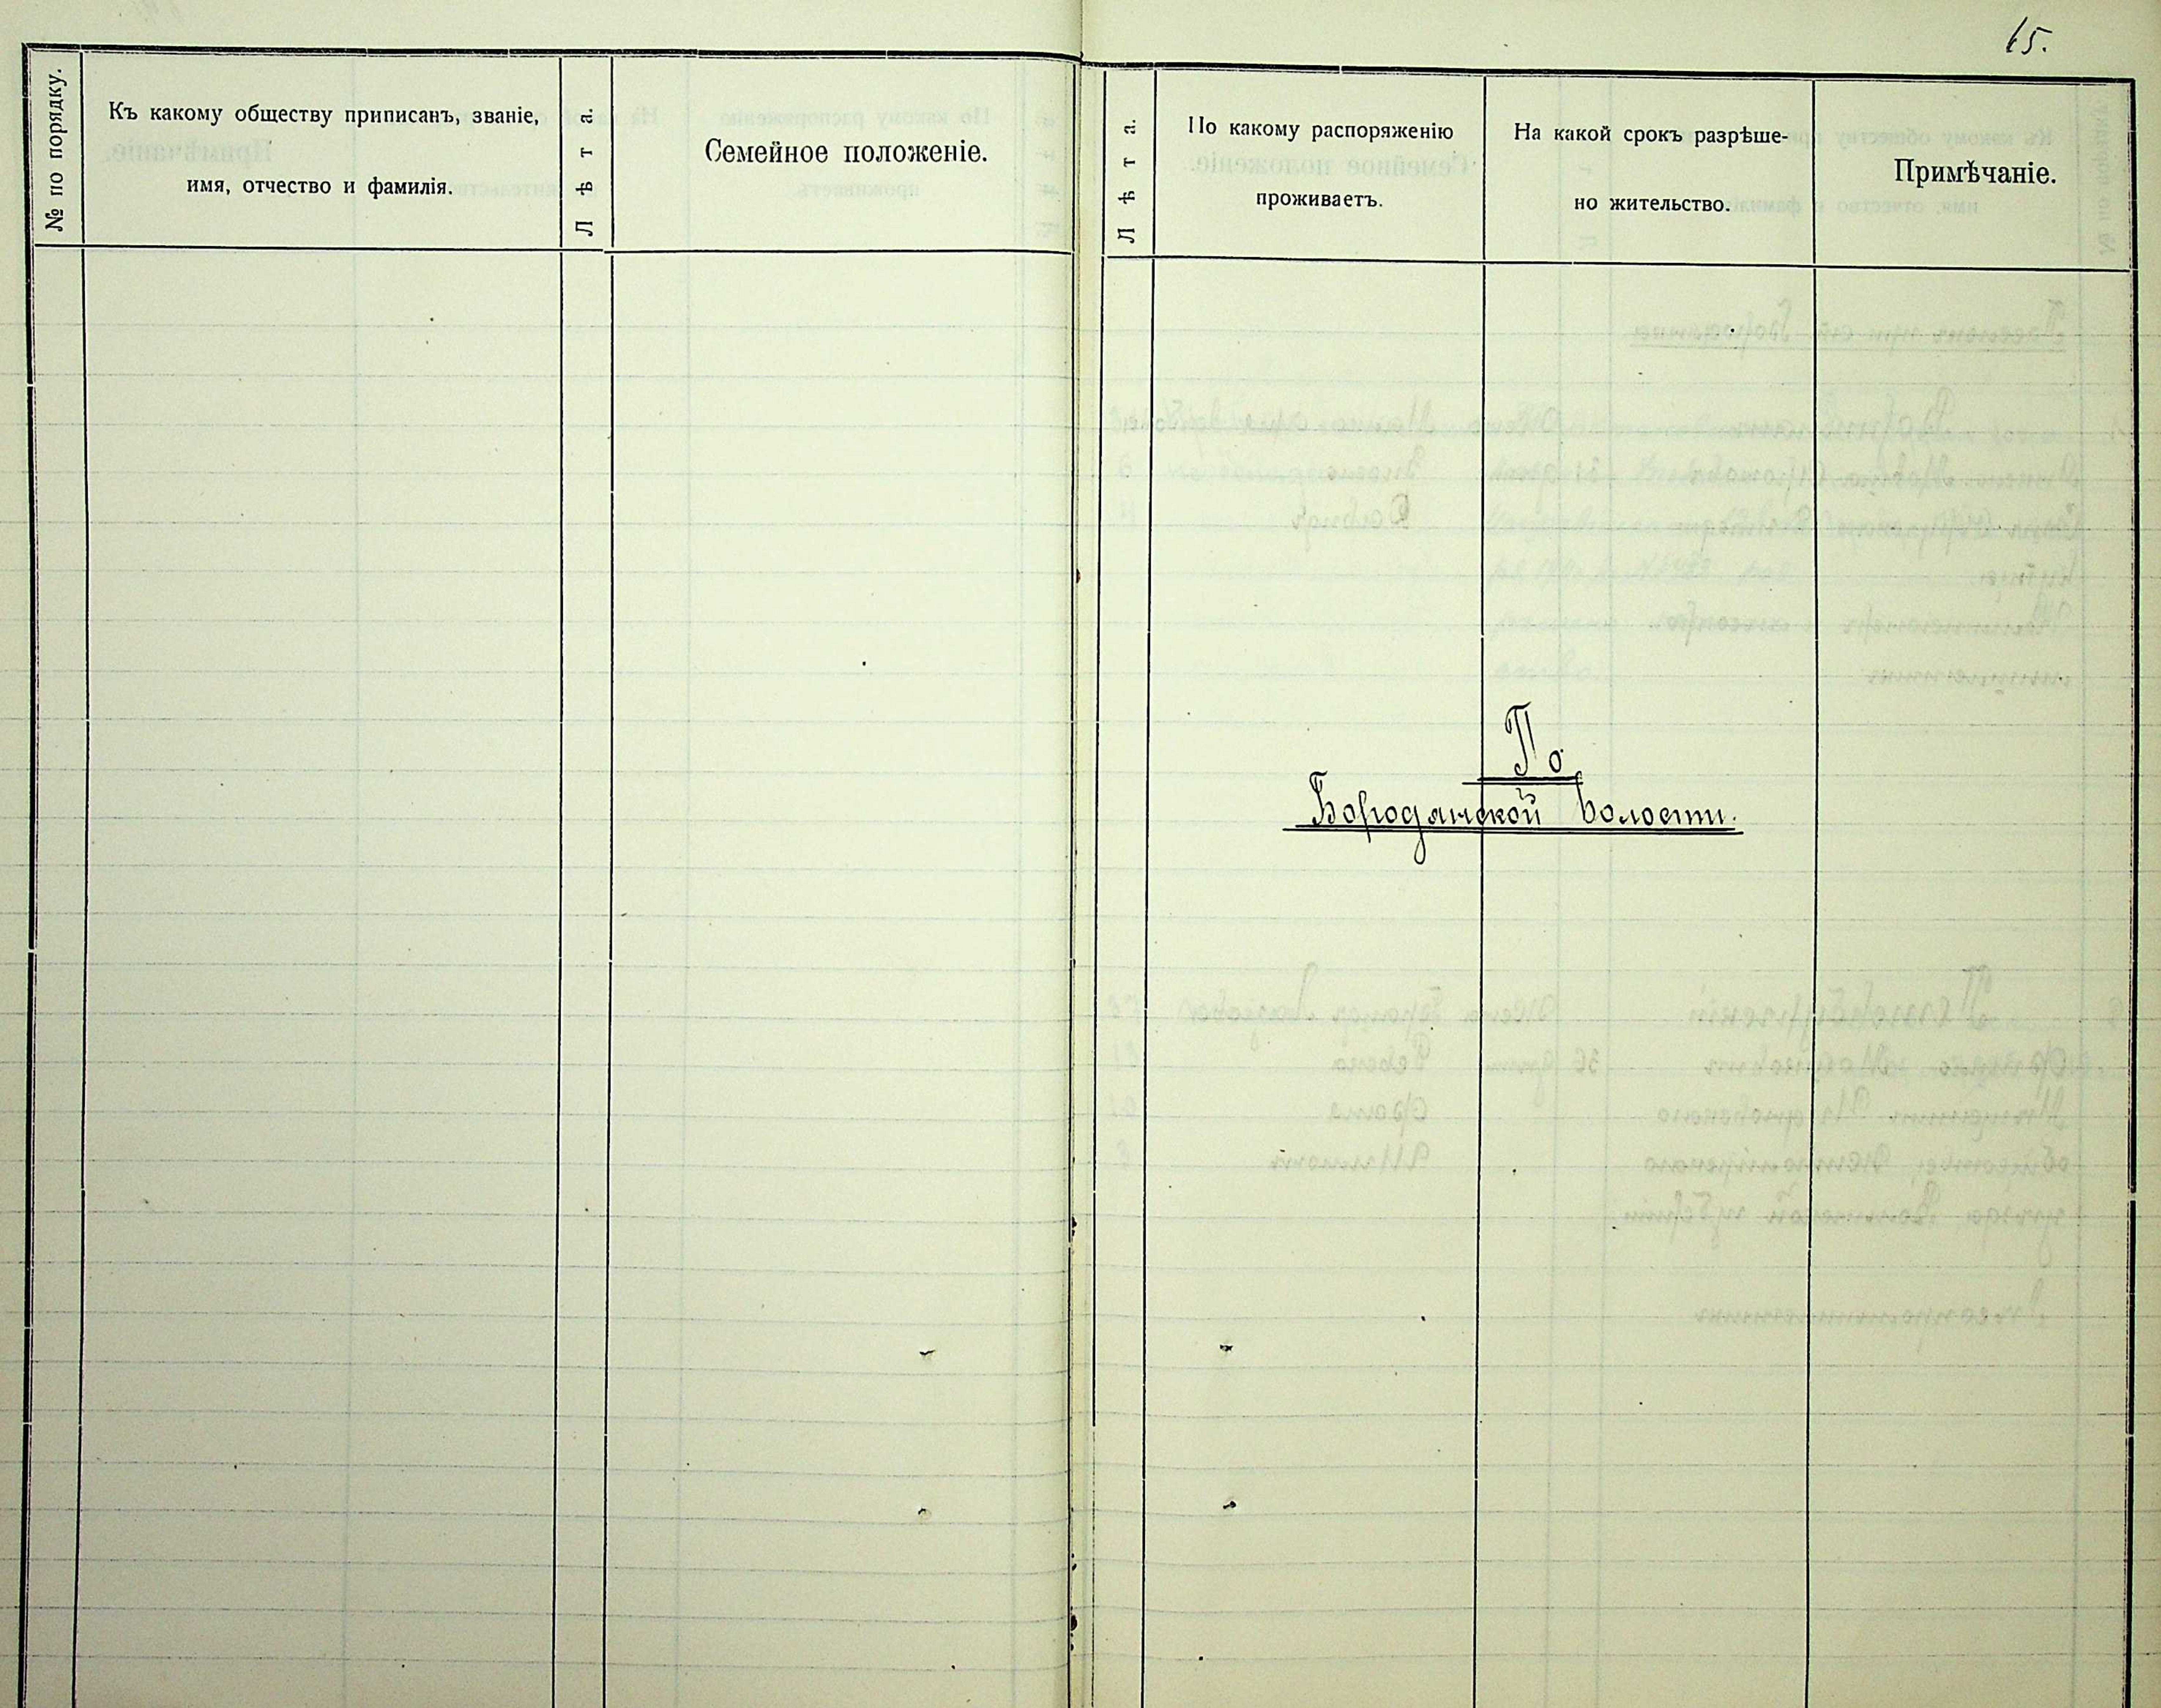 65.
№ по порядку.
Къ какому обществу приписанъ, званіе,
имя, отчество и фамилія.
Лѣта.
Семейное положеніе.
Лѣта.
По какому распоряженію
проживаетъ.
На какой срокъ разрѣше-
но жительство.
Примѣчаніе.
По
Бородянской волости.